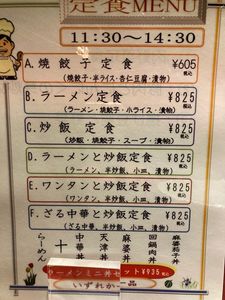 定食MENU
11:30～14:30
A.焼餃子定食 ¥605税込
(焼餃子・半ライス・杏仁豆腐・漬物)
B.ラーメン定食 ¥825税込
(ラーメン・焼餃子・小ライス・漬物)
C.炒飯 定食 ¥825税込
(炒飯・焼餃子・スープ・漬物)
D.ラーメンと炒飯定食 ¥825税込
(ラーメン、半炒飯、小皿、漬物)
E.ワンタンと炒飯定食 ¥825税込
(ワンタン、半炒飯、小皿、漬物)
F.ざる中華と炒飯定食 ¥825税込
(ざる中華、半炒飯、小皿、漬物)
らーめん
+
中華丼
天津丼
麻婆丼
回鍋肉丼
麻婆茄子丼
ラーメンミニ丼セット ¥935税込
いずれか